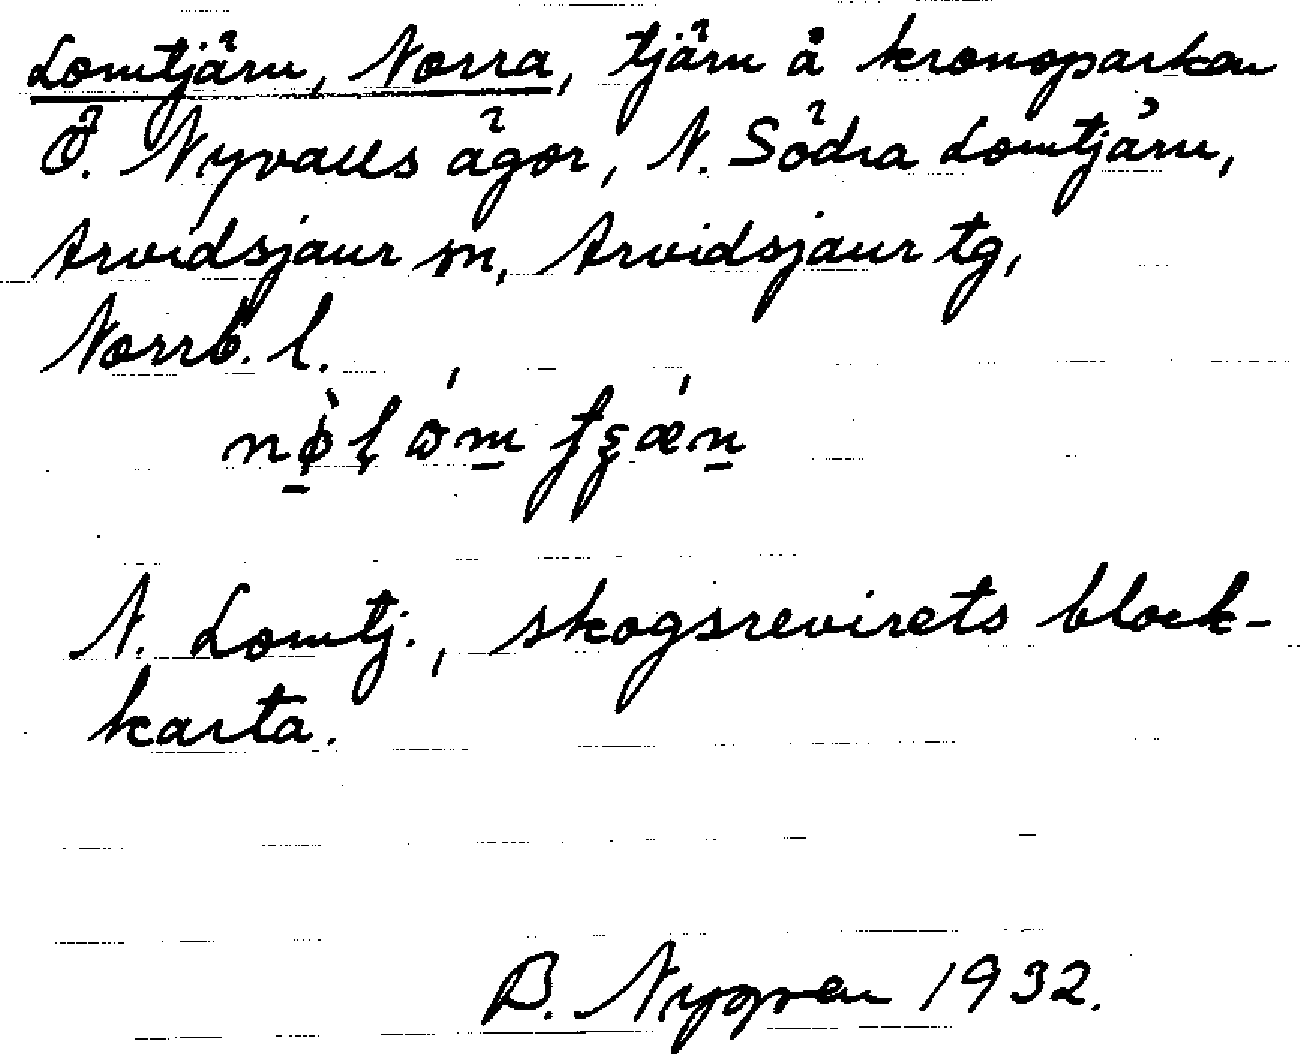 Lomtjärn, Norra, tjärn å kronoparken
Ö. Nyvalls ägor, N. Södra Lomtjärn,
Arvidsjaur sn, Arvidsjaur tg,
Norrb. l.
N. Lomtj., skogsrevirets block-
karta.
B. Nygren 1932.